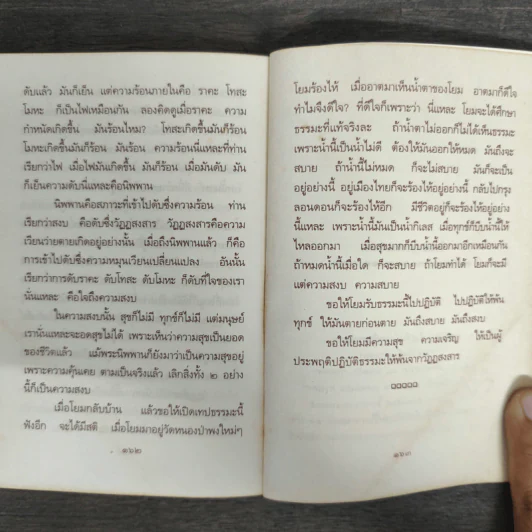 ดับแล้ว มันก็เย็น แต่ความร้อนภายในคือ ราคะ โทสะ
โมหะ ก็เป็นไฟเหมือนกัน ลองคิดดูเมื่อราคะ ความ
กำหนัดเกิดขึ้น มันร้อนไหม? โทสะเกิดขึ้นมันก็ร้อน
โมหะเกิดขึ้นมันก็ร้อน มันร้อน ความร้อนนี่แหละที่ท่าน
เรียกว่าไฟ เมื่อไฟมันเกิดขึ้น มันก็ร้อน เมื่อมันดับ มัน
ก็เย็นความดับนี่แหละคือนิพพาน
นิพพานคือสภาวะที่เข้าไปดับซึ่งความร้อน ท่าน
เรียกว่าสงบ คือดับซึ่งวัฏฏสงสาร วัฏฏสงสารคือความ
เวียนว่ายตายเกิดอยู่อย่างนั้น เมื่อถึงนิพพานแล้ว ก็คือ
การเข้าไปดับซึ่งความหมุนเวียนเปลี่ยนแปลง อันนั้น
เรียกว่าการดับราคะ ดับโทสะ ดับโมหะ ก็ดับที่ใจของเรา
นั่นแหละ คือใจถึงความสงบ
ในความสงบนั้น สุขก็ไม่มี ทุกข์ก็ไม่มี แต่มนุษย์
เรานั่นแหละจะอดสุขไม่ได้ เพราะเห็นว่าความสุขเป็นยอด
ของชีวิตแล้ว แม้พระนิพพานก็ยังมาว่าเป็นความสุขอยู่
เพราะความคุ้นเคย ตามเป็นจริงแล้ว เลิกสิ่งทั้ง ๒ อย่าง
นี้ก็เป็นความสงบ
เมื่อโยมกลับบ้าน แล้วขอให้เปิดเทปธรรมะนี้
ฟังอีก จะได้มีสติ เมื่อโยมมาอยู่วัดหนองป่าพงใหม่ๆ
๑๖๒
โยมร้องไห้ เมื่ออาตมาเห็นน้ำตาของโยม อาตมาก็ดีใจ
ทำไมจึงดีใจ? ที่ดีใจก็เพราะว่า นี่แหละ โยมจะได้ศึกษา
ธรรมะที่แท้จริงละ ถ้าน้ำตาไม่ออกก็ไม่ได้เห็นธรรมะ
เพราะน้ำนี้เป็นน้ำไม่ดี ต้องให้มันออกให้หมด มันถึงจะ
สบาย ถ้าน้ำนี้ไม่หมด ก็จะไม่สบาย มันก็จะเป็น
อยู่อย่างนี้ อยู่เมืองไทยก็จะร้องไห้อยู่อย่างนี้ กลับไปกรุง
ลอนดอนก็จะร้องไห้อีก มีชีวิตอยู่ก็จะร้องไห้อยู่อย่าง
นี้แหละ เพราะน้ำนี้มันเป็นน้ำกิเลส เมื่อทุกข์ก็บีบน้ำนี้ให้
ไหลออกมา เมื่อสุขมากก็บีบน้ำนี้ออกมาอีกเหมือนกัน
ถ้าหมดน้ำนี้เมื่อใด ก็จะสบาย ถ้าโยมทำได้ โยมก็จะมี
แต่ความสงบ ความสบาย
ขอให้โยมรับธรรมะนี้ไปปฏิบัติ ไปปฏิบัติให้พ้น
ทุกข์ ให้มันตายก่อนตาย มันถึงสบาย มันถึงสงบ
ขอให้โยมมีความสุข ความเจริญ ให้เป็นผู้
ประพฤติปฏิบัติธรรมะให้พ้นจากวัฏฏสงสาร
๑๖๓